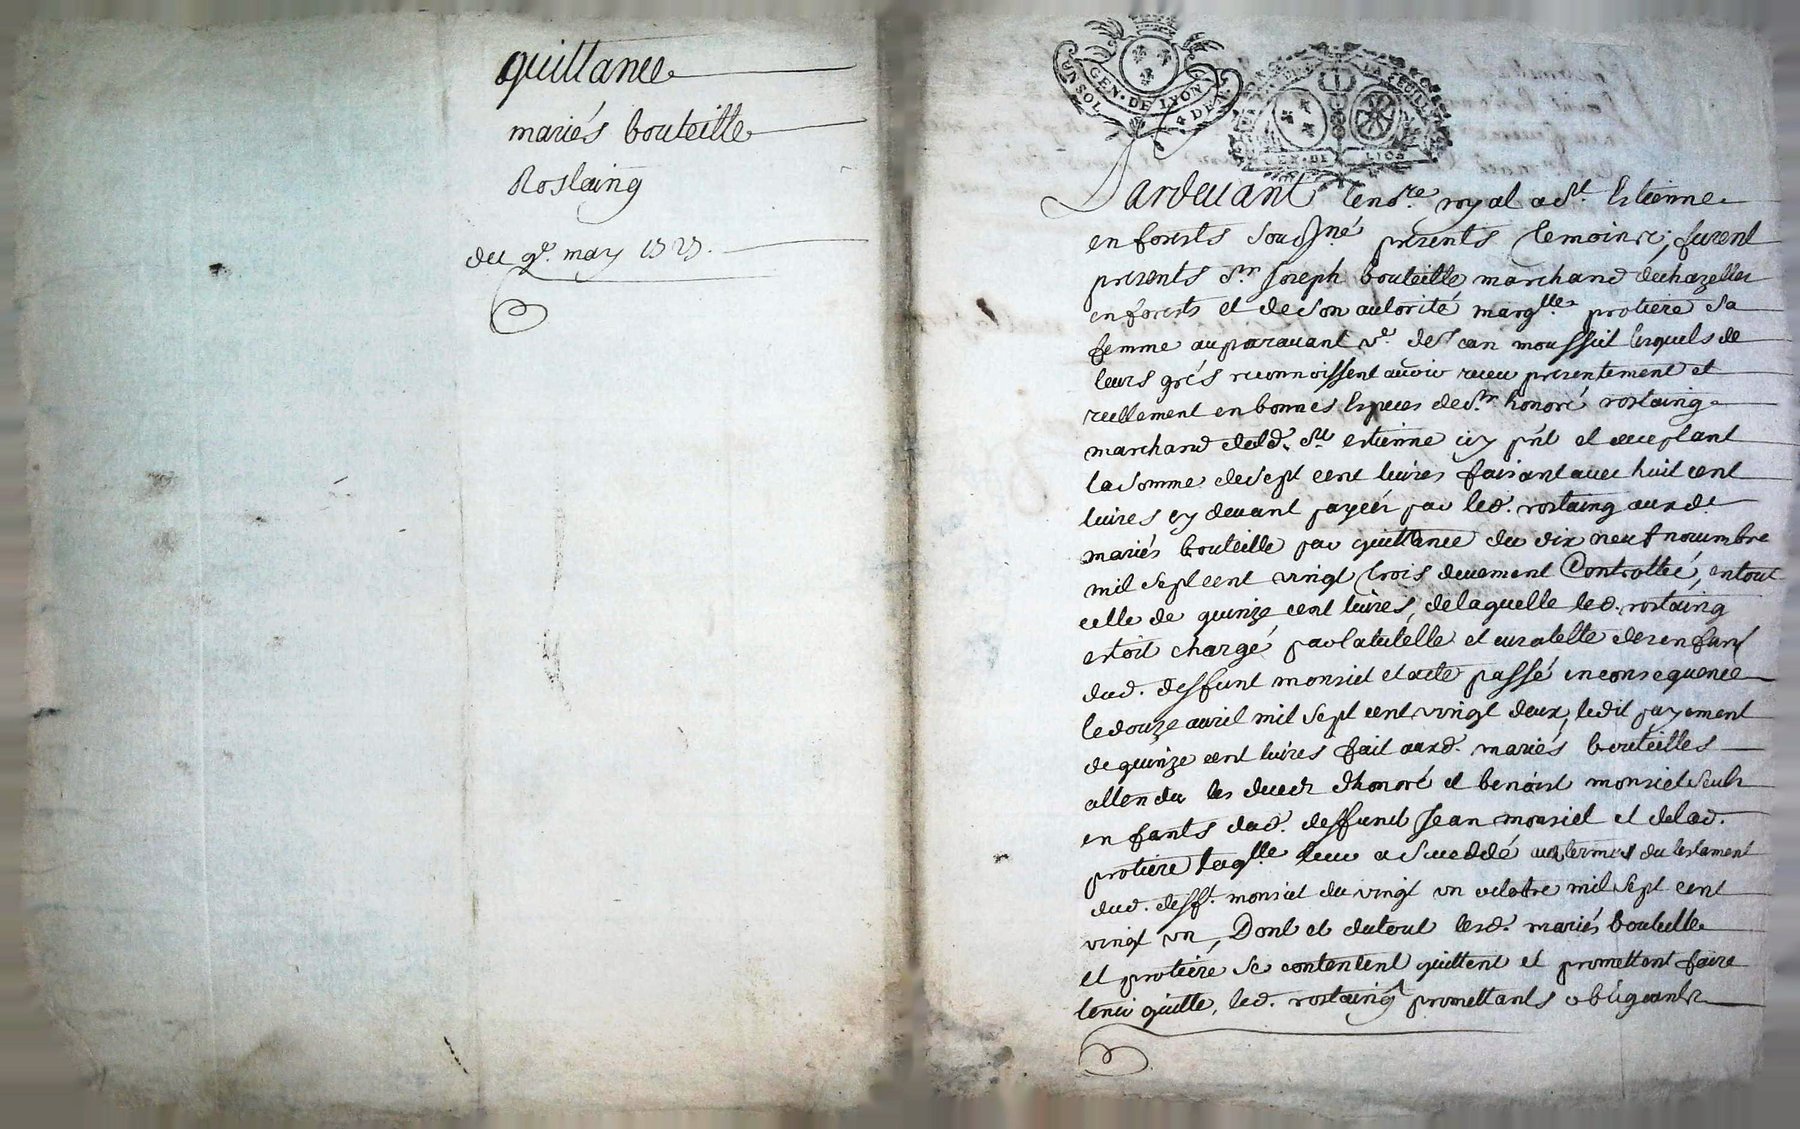 quittance
mariés bouteille
Rostaing
du 9e. may 1725.
UN SOL GEN·DE LYON 4 DEN.
LA FEUILLE GEN·DE LION
Pardevant le no.re royal a St. Estienne
en forests sousigné présents temoins, furent
présents Sr. Joseph bouteille marchand de chazelles
en forests et de son autorité marg.lle protiere sa
femme auparavant v.e de Jean lesquels de
leurs grés reconnoissent avoir receu presentement et
reellement en bonnes Especes de Sr. honoré rostaing
marchand dud. St. estienne icy pnt et acceptant
la somme de sept cent livres faisant avec huit cent
livres cy devant payées par led. rostaing auxd.
mariés bouteille par quittance du dix neuf novembre
mil sept cent vingt trois deuement Controllée, en tout
celle de quinze cent livres, de laquelle led. rostaing
estoit chargé par la tutelle et curatelle des enfans
dud. deffunt monsiel et acte passé en consequence
le douze avril mil sept cent vingt deux, ledit payement
de quinze cent livres fait auxd. mariés bouteilles
attendu les decedz d'honoré et benoist monsiel seuls
enfants dud. deffunct Jean monsiel et delad.
protiere laq.lle leur a succeddé aux termes du testament
dud. deff.t monsiel du vingt un octobre mil sept cent
vingt un, Dont et du tout lesd. mariés bouteille
et protiere se contentent quittent et promettent faire
tenir quitte, led. rostaing promettants obligeants